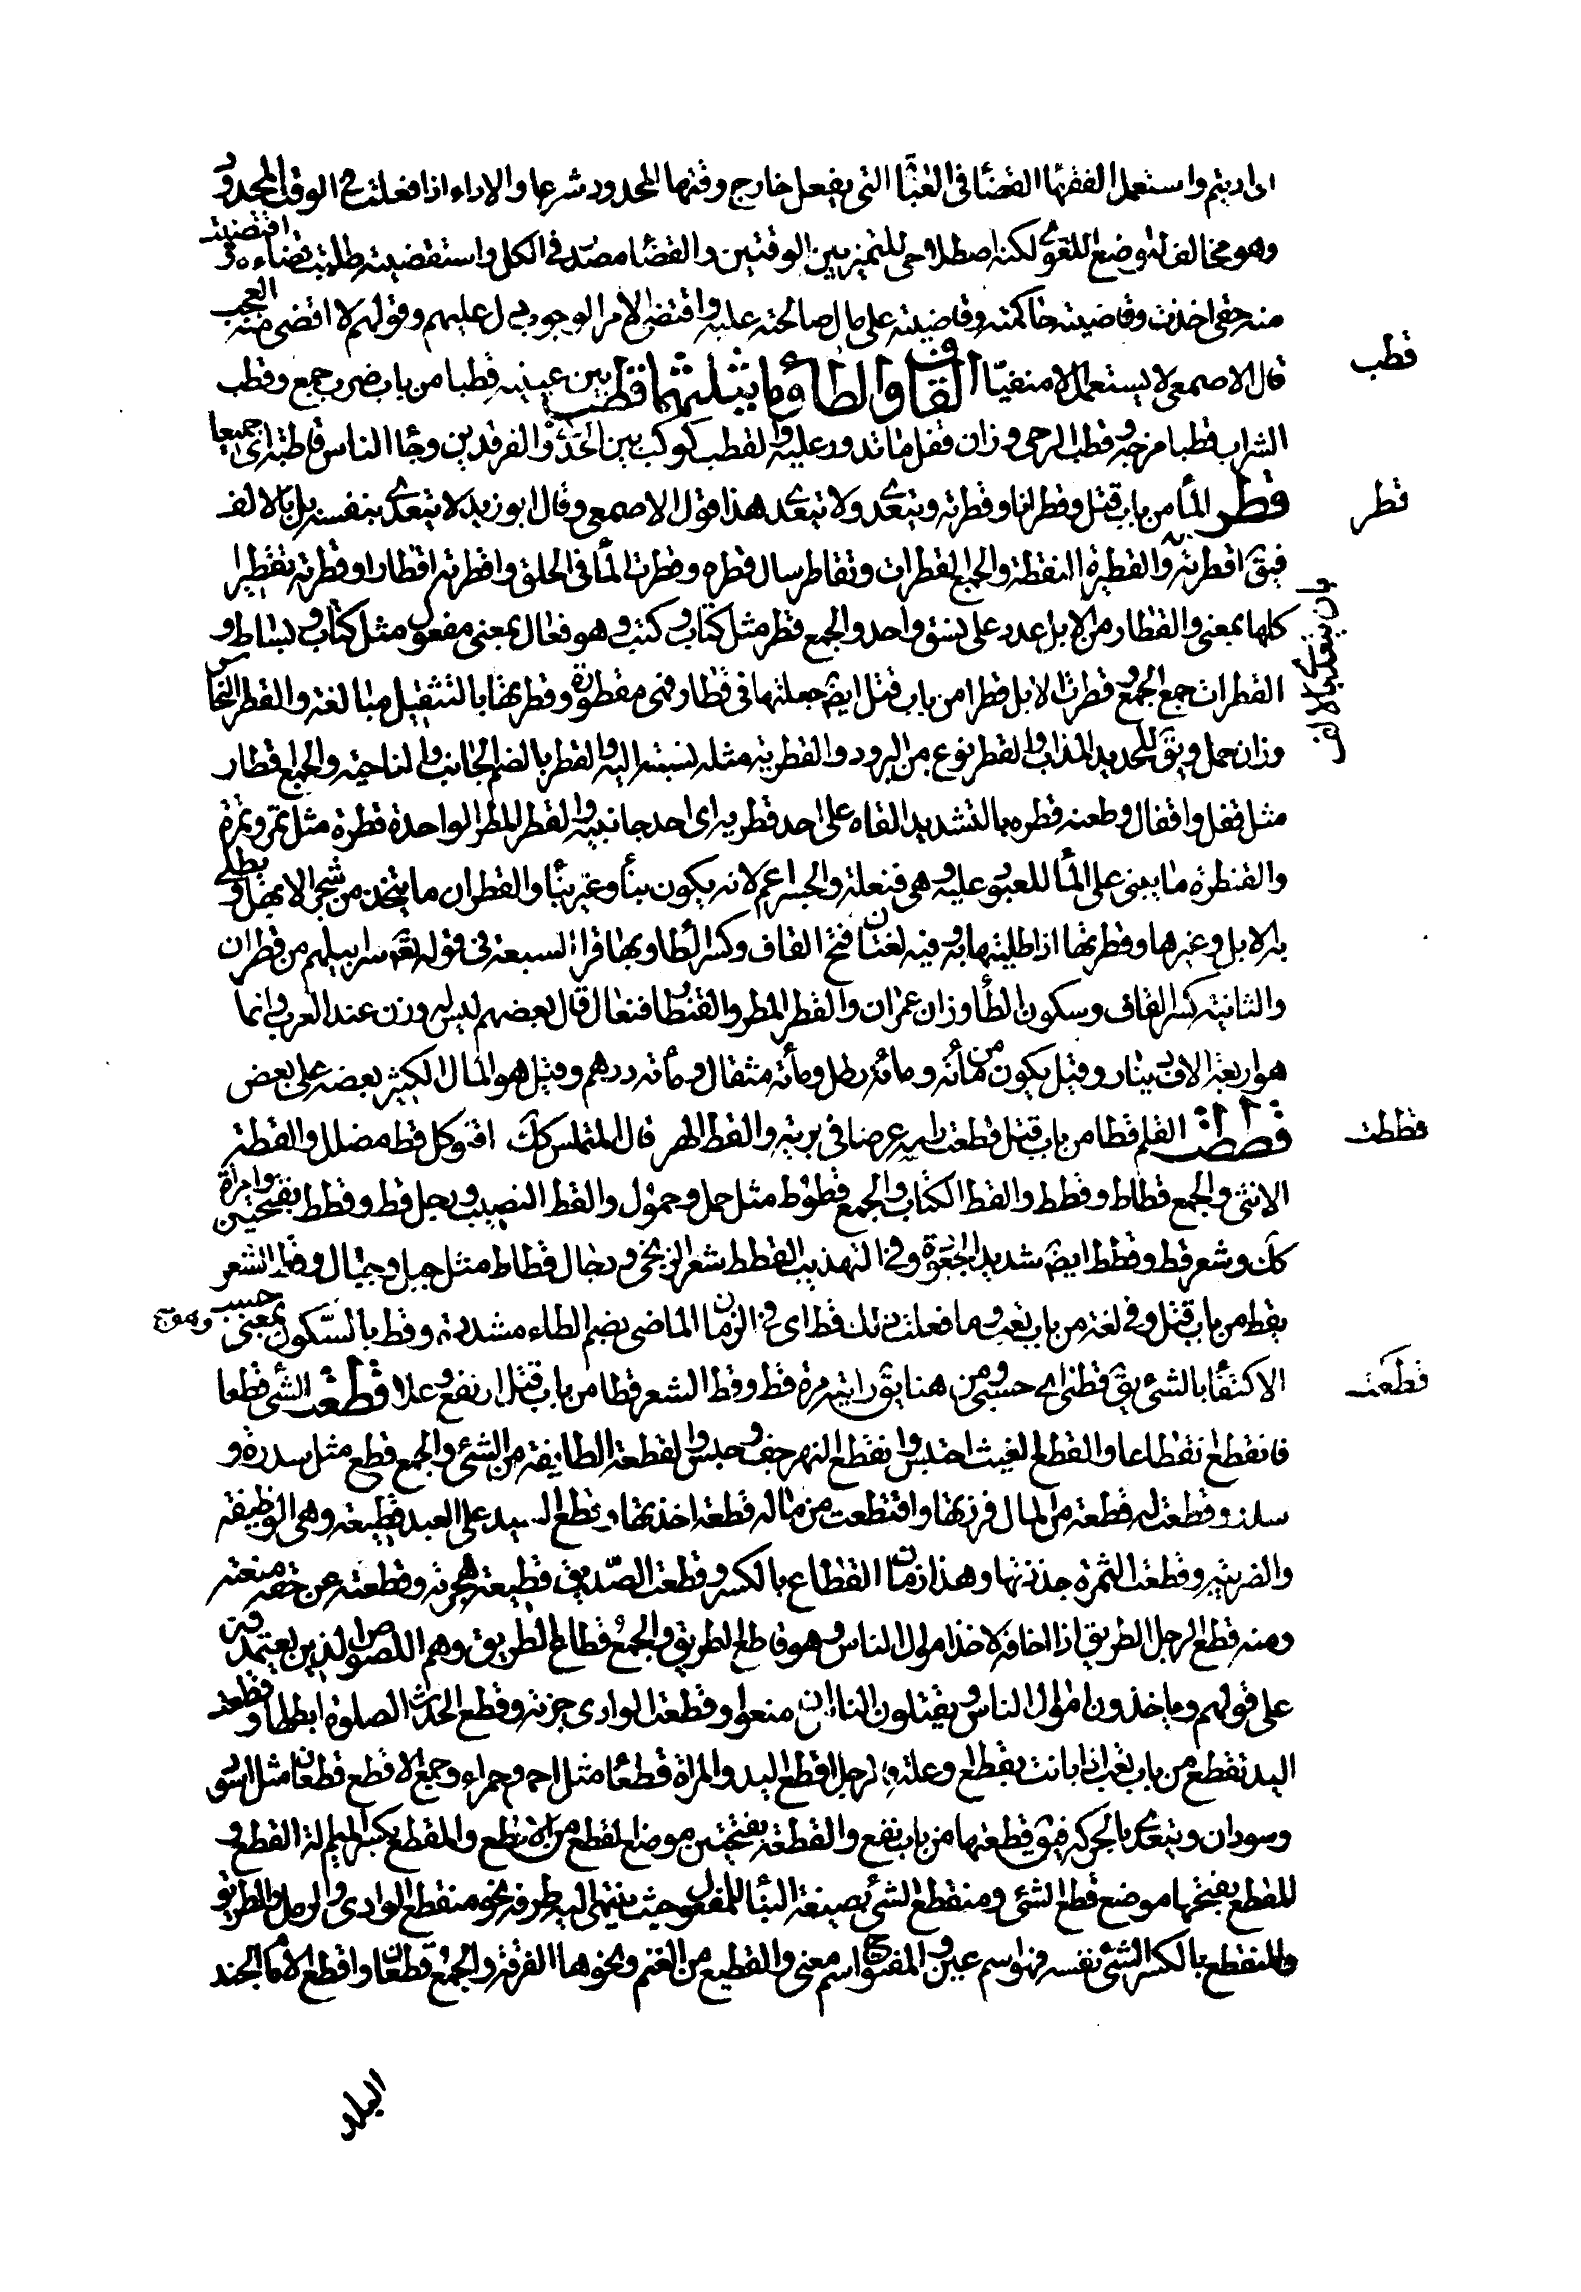 اى اديتم واستعمل الفقهآ القضآ فى العبٰا التى يفعل خارج وقتها المحدود شرعا والاداء اذا فعلت فى الوقت المحدود
وهو مخالف لوضع اللغوى لكنه اصطلاحى للتميز بين الوقتين والقضآ مصدر فى الكل واستقضيته طلبت قضاءه و اقتضيت
منه حقى اخذت وقاضيته حاكمته وقاضيته على مال صالحته عليه واقتضى الامر الوجوب دل عليهم وقولهم لا اقضى منه العجب
قال الاصمعى لا يستعمل الا منفيّا القاف والطاء وما يثلثهما قطب بين عينيه قطبا من باب ضرب جمع وقطب
قطب
الشراب قطبا مزجه وقطب الرحى وزان قفل ما تدور عليه والقطب كوكب بين الجدى والفرقدين وجآ الناس قاطبة اى جميعا
قطر المآ من باب قتل وقطرانا وقطرته ويتعدى ولا يتعدى هذا قول الاصمعى وقال ابو زيد لا يتعدى بنفسه بل بالالف
قطر
فيق اقطرته والقطرة النقطة والجمع القطرات وتقاطر سال قطرة وقطرت المآ فى الحلق واقطرته اقطارا وقطرته تقطيرا
كلها بمعنى والقطار من الابل عدد على نسق واحد والجمع قطر مثل كتاب وكتب وهو فعال بمعنى مفعول مثل كتاب وبساط و
بان يتعدى بالالف
القطرات جمع الجمع وقطرت الابل قطرا من باب قتل ايضا جعلتها فى قطار فهى مقطورة وقطرتها بالتثقيل مبالغة والقطر النحاس
وزان حمل ويق للحديد المذاب والقطر نوع من البرود والقطرية مثله نسبة اليه والقطر بالضم الجانب والناحية والجمع اقطار
مثل قفل واقفال وطعنه فقطره بالتشديد القاه على احد قطريه اى احد جانبيه والقطر المطر الواحدة قطرة مثل تمر وتمرة
والقنطرة ما يبنى على المآ للعبور عليه وهى فنعلة والجسر اعم لانه يكون بنآ وغير بنآ والقطران ما يتخذ من شجر الابهل ويطلى
به الابل وغيرها وقطرتها اذا طليتها به وفيه لغتان فتح القاف وكسر الطا وبها قرا السبعة فى قوله تعٰ سرابيلهم من قطران
والثانية كسر القاف وسكون الطآ وزان عمران والقطر المطر والقنطار فنعال قال بعضهم ليس له وزن عند العرب وانما
هو اربعة الاف دينار وقيل يكون من مائة ومائة رطل ومائة مثقال ومائة درهم وقيل هو المال الكثير بعضه على بعض
قططت القلم قطا من باب قتل قطعت راسه عرضا فى بريه والقط الهر قال المتلمس كك اقنو كل قط مضلل والقطة
قططت
الانثى والجمع قطاط وقطط والقط الكتاب والجمع قطوط مثل حمل وحمول والقط النصيب ورجل قط وقطط بفتحتين وامراة
كك وشعر قط وقطط ايضا شديد الجعودة وفى التهذيب القطط شعر الزنجى ورجال قطاط مثل جبل وجبال وقط الشعر
يقط من باب قتل وفى لغة من باب تعب وما فعلت ذلك قط اى فى الزمان الماضى بضم الطاء مشددة وقط بالسكون بمعنى حسب وهو ج
الاكتفآ بالشئ يق قطنى اى حسبى ومن هنا يق رايته مرة فقط وقط السعر قطا من باب قتل ارتفع وعلا قطعت الشئ قطعا
قطعت
فانقطع انقطاعا وانقطع الغيث احتبس وانقطع النهر جف وحبس والقطعة الطايفة من الشئ والجمع قطع مثل سدرة و
سدر وقطعت له قطعة من المال فرزتها واقتطعت من ماله قطعة اخذتها وقطع السيد على العبد قطيعة وهى الوظيفة
والضريبة وقطعت الثمرة جذذتها وهذا زمان القطاع بالكسر وقطعت الصديق قطيعة هجرته وقطعته عن حقه منعته
ومنه قطع الرجل الطريق اذا اخافه لاخذ اموال الناس وهو قاطع الطريق والجمع قطاع الطريق وهم اللصوص الذين يعتمدون
على قوتهم وياخذون اموال الناس ويقتلون الناس ان منعوا وقطعت الوادى جزته وقطع الحدث الصلوة ابطلها وقطعت
اليد تقطع من باب تعب اذا بانت بقطع وعلة والرجل اقطع اليد والمراة قطعآ مثل احمر وحمراء وجمع الاقطع قطعان مثل اسود
وسودان ويتعدى بالحركة فيق قطعتها من باب نفع والقطعة بفتحتين موضع القطع من الاقطع والمقطع بكسر الميم آلة القطع و
المقطع بفتحها موضع قطع الشئ ومنقطع الشئ بصيغة البنآ للمفعول حيث ينتهى اليه طرفه نحو منقطع الوادى والرمل والطريق
والمنقطع بالكسر الشئ نفسه فهو اسم عين والمفتوح اسم معنى والقطيع من الغنم ونحوها الفرقة والجمع قطعان واقطع الامام الجند
البلد